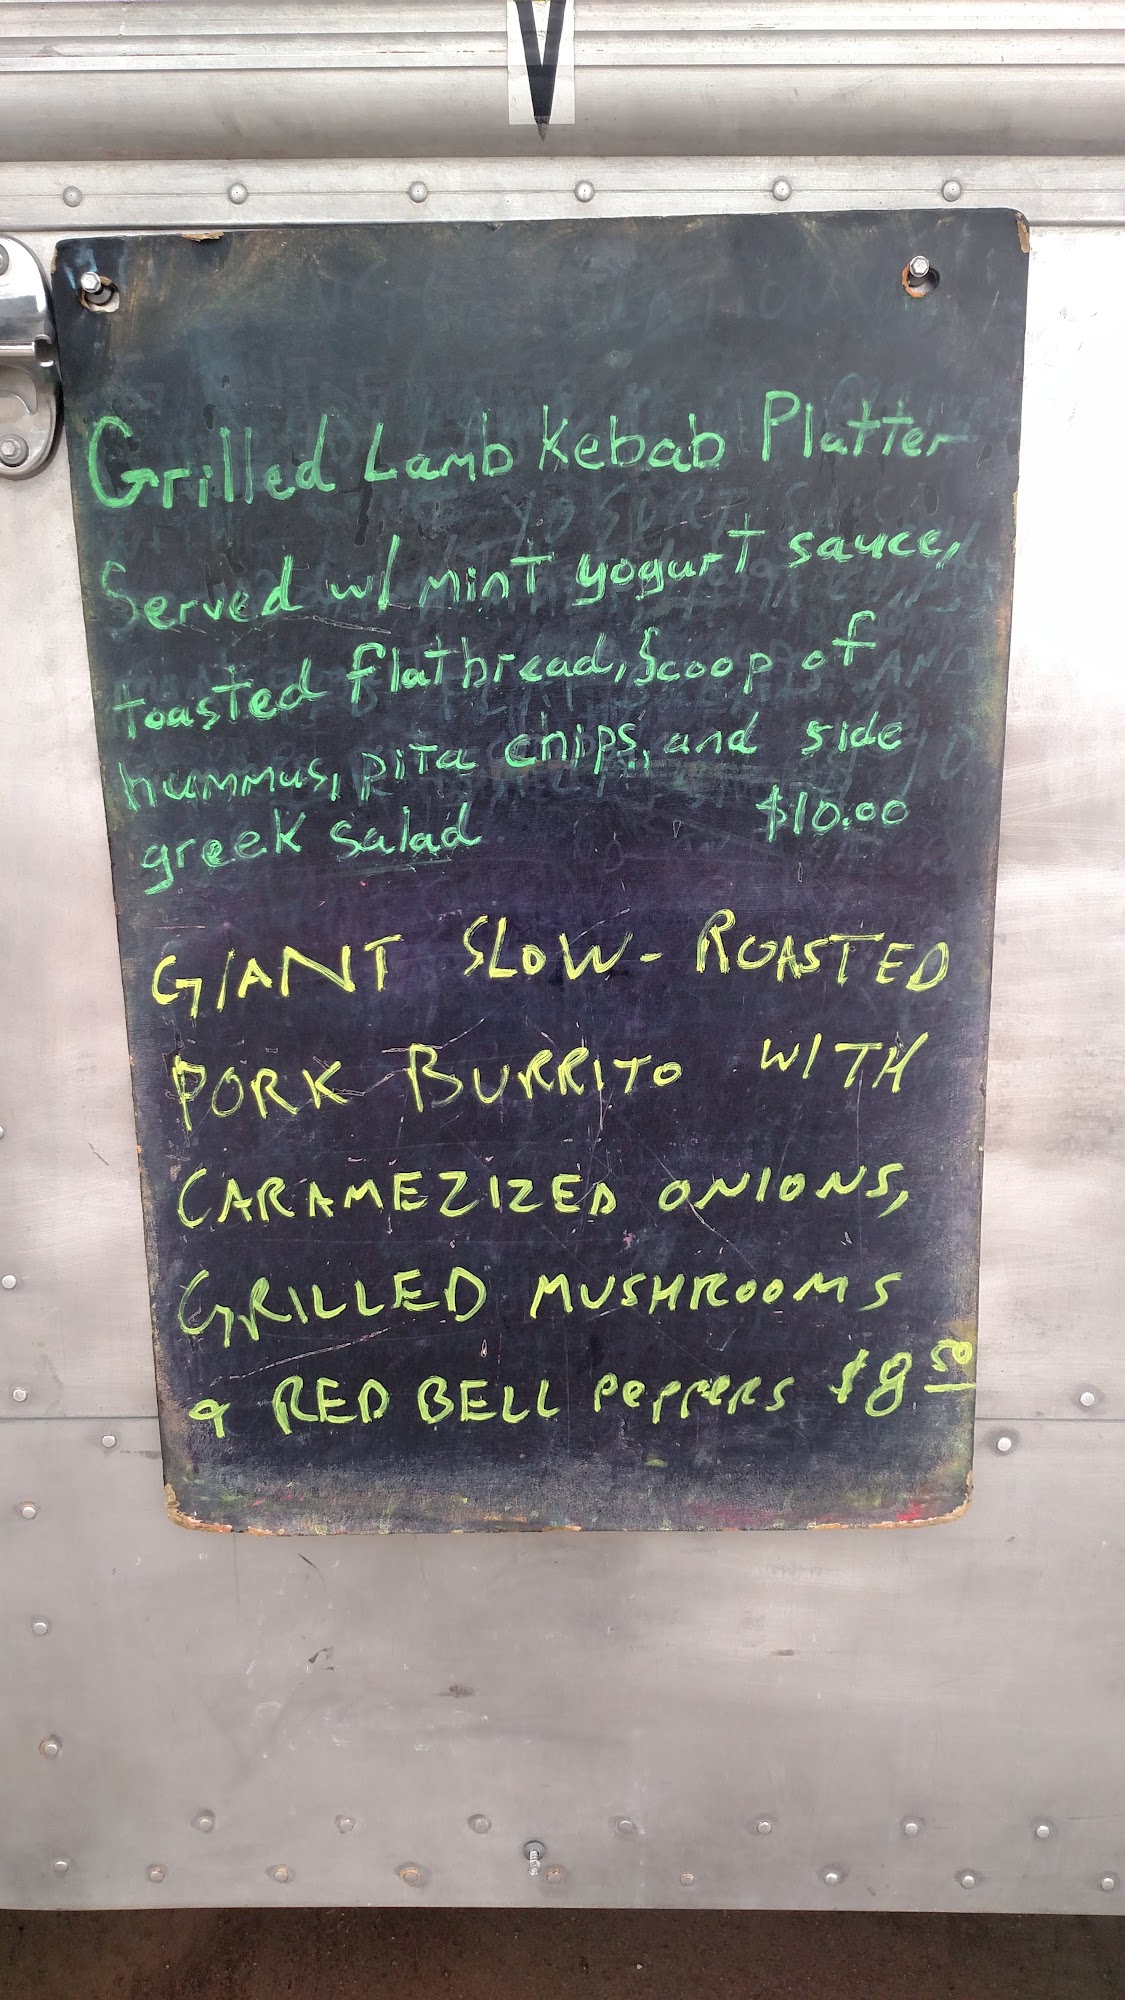 V
Grilled Lamb Kebab Platter
Served w/ mint yogurt sauce,
toasted flatbread, Scoop of
hummus, pita chips, and side
greek salad $10.00
GIANT SLOW-ROASTED
PORK BURRITO WITH
CARAMEZIZED ONIONS,
GRILLED MUSHROOMS
& RED BELL PEPPERS $8 50